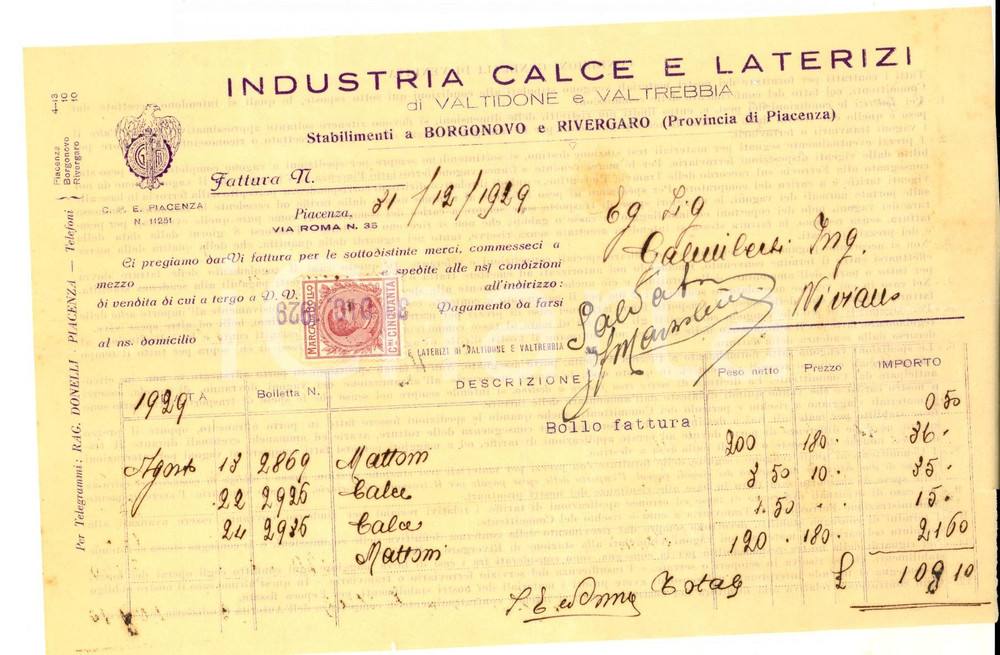 INDUSTRIA CALCE E LATERIZI
di VALTIDONE e VALTREBBIA
Stabilimenti a BORGONOVO e RIVERGARO (Provincia di Piacenza)
Per Telegrammi: RAG. DONELLI - PIACENZA — Telefoni
Piacenza 4-13
Borgonovo 10
Rivergaro 10
C. P. E. PIACENZA
N. 11251
Fattura N.
Piacenza, 31/12/1929
VIA ROMA N. 35
Eg Sig
Ing.
Ci pregiamo darVi fattura per le sottodistinte merci, commesseci a
mezzo e spedite alle nsj condizioni
di vendita di cui a tergo a D. V. all'indirizzo:
Pagamento da farsi
al ns. domicilio
MARCA DA BOLLO
Cmi CINQUANTA
3 DIC. 1929
E LATERIZI DI VALTIDONE E VALTREBBIA
Saldato
Viviano
DATA Bolletta N. DESCRIZIONE Peso netto Prezzo IMPORTO
1929
Bollo fattura 0 50
Agosto 13 2869 Mattoni 200 180. 36.
22 2925 Calce 3 50 10. 35.
24 2935 Calce 1.50 . . 15.
Mattoni 120 . 180. 21 60
Totale £ 108 10